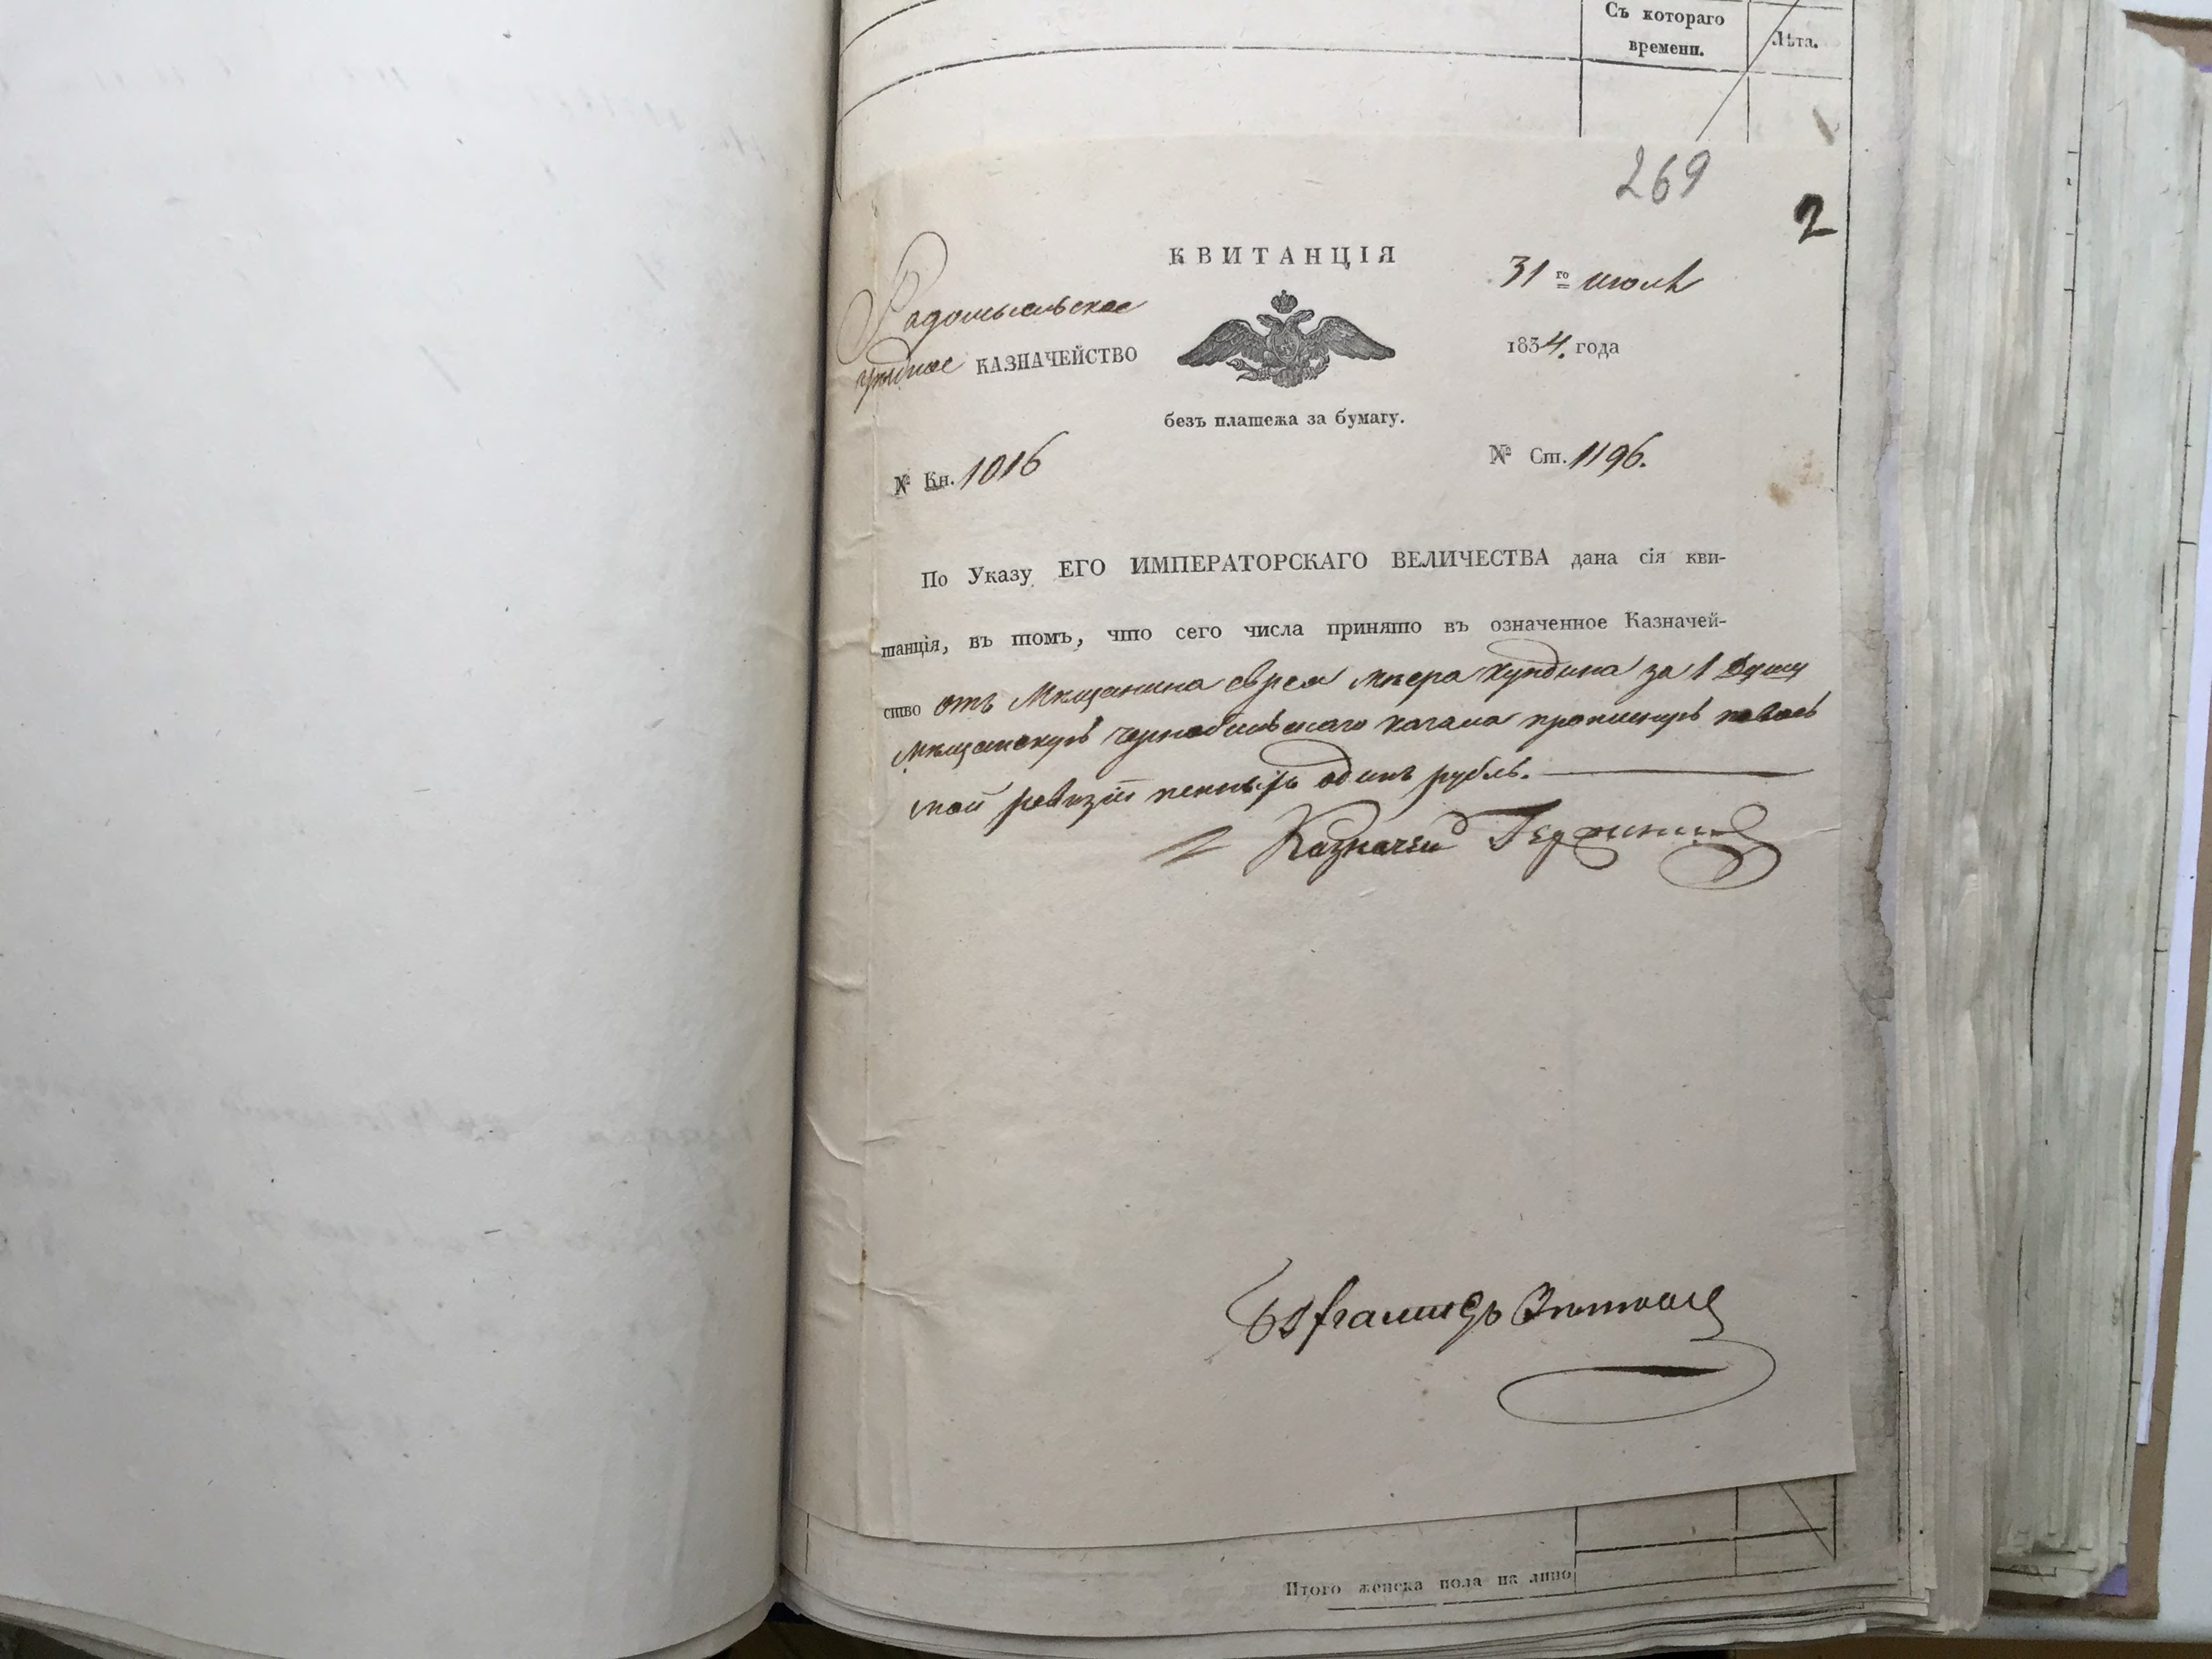 Съ котораго
времени.
Лѣта.
269
2
КВИТАНЦІЯ
Радомысльское
уездное КАЗНАЧЕЙСТВО
31го июля
1834. года
безъ платежа за бумагу.
№ Кн. 1016
№ Ст. 1196.
По Указу ЕГО ИМПЕРАТОРСКАГО ВЕЛИЧЕСТВА дана сія кви-
танція, въ томъ, что сего числа принято въ означенное Казначей-
ство отъ Мещанина еврея Меера за 1 душу
Чернобыльскаго кагала
ревизіи один рубль.
Казначей
Итого женска пола на лицо